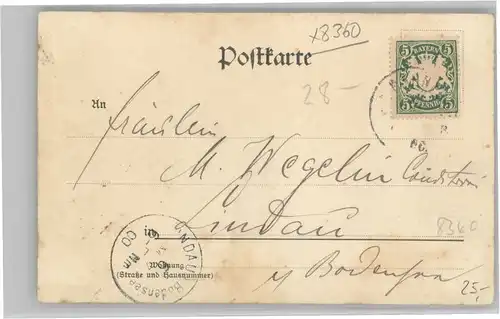 x8360
Postkarte
28-
5 BAYERN 5
5 PFENNIG 5
An
Fräulein
M. Wegelin Conditorei
Lindau
8360
in
LINDAU
Bodensee
Wohnung
(Straße und Hausnummer)
Bodensee
25,-